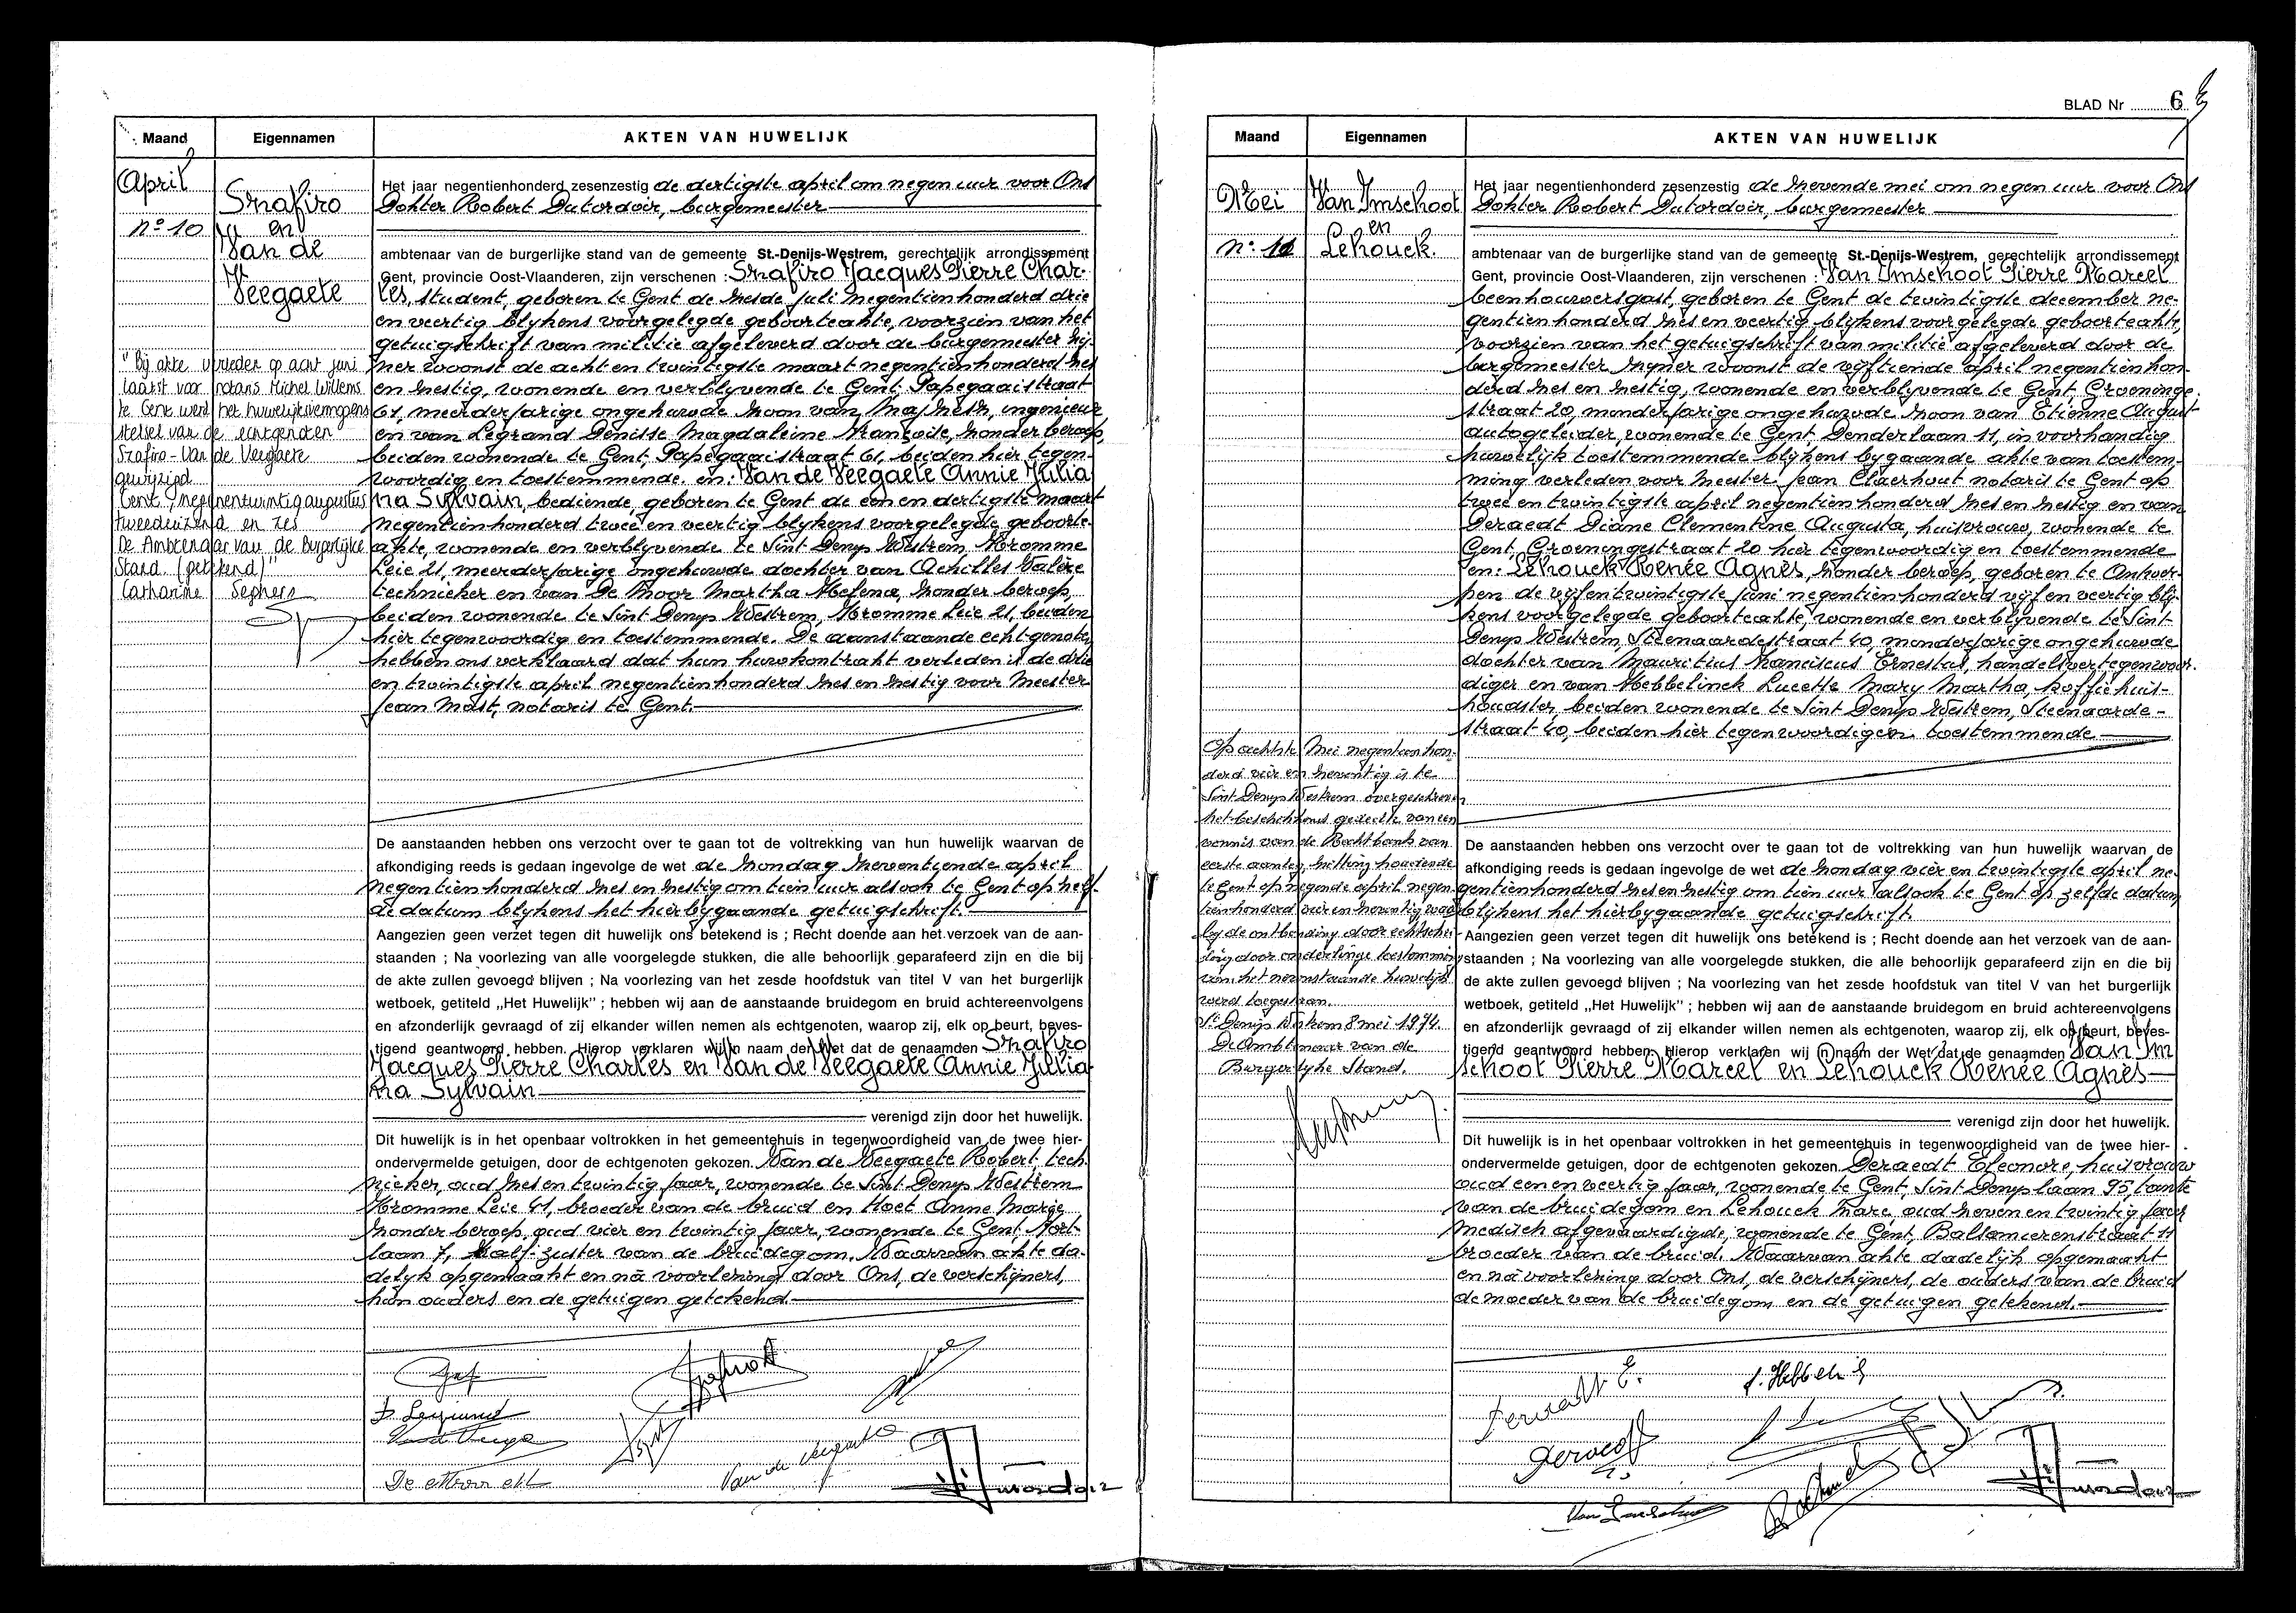 Maand Eigennamen AKTEN VAN HUWELIJK
April
nº 10
Szafiro
en
Van de
Veegaete
"Bij akte verleden op acht juni
laatst voor notaris Michel Willems
te Gent werd het huwelijksvermogens
stelsel van de echtgenoten
Szafiro-Van de Veegaete
gewijzigd.
Gent, negenentwintig augustus
tweeduizend en zes
De Ambtenaar van de Burgerlijke
Stand (getekend)"
Catharina Seghers
Het jaar negentienhonderd zesenzestig de dertigste april om negen uur voor Ons
Dokter Robert Dutordoir, burgemeester
ambtenaar van de burgerlijke stand van de gemeente St.-Denijs-Westrem, gerechtelijk arrondissement
Gent, provincie Oost-Vlaanderen, zijn verschenen : Szafiro Jacques Pierre Char-
les, student, geboren te Gent de zesde juli negentienhonderd drie
en veertig blykens voorgelegde geboorteakte, voorzien van het
getuigschrift van militie afgeleverd door de burgemeester zy-
ner woonst de acht en twintigste maart negentienhonderd zes
en zestig, wonende en verblyvende te Gent, Papegaaistraat
61, meerderjarige ongehuwde zoon van Majzesz, ingenieur
en van Legrand Denise Magdaleine Françoise, zonder beroep,
beiden wonende te Gent, Papegaaistraat 61, beiden hier tegen-
woordig en toestemmende. en: Van de Veegaete Annie Julia
na Sylvain, bediende, geboren te Gent de een en dertigste maart
negentienhonderd twee en veertig blykens voorgelegde geboorte-
akte, wonende en verblyvende te Sint Denys Westrem, Kromme
Leie 21, meerderjarige ongehuwde dochter van Achilles Valère
technieker en van De Moor Martha Helena, zonder beroep,
beiden wonende te Sint Denys Westrem, Kromme Leie 21, beiden
hier tegenwoordig en toestemmende. De aanstaande echtgenoten
hebben ons verklaard dat hun huwkontrakt verleden is de drie
en twintigste april negentienhonderd zes en zestig voor Meester
Jean Mast, notaris te Gent.
De aanstaanden hebben ons verzocht over te gaan tot de voltrekking van hun huwelijk waarvan de
afkondiging reeds is gedaan ingevolge de wet de zondag zeventiende april
negentienhonderd zes en zestig om tien uur alsook te Gent op zelf-
de datum blykens het hierbygaande getuigschrift.
Aangezien geen verzet tegen dit huwelijk ons betekend is ; Recht doende aan het verzoek van de aan-
staanden ; Na voorlezing van alle voorgelegde stukken, die alle behoorlijk geparafeerd zijn en die bij
de akte zullen gevoegd blijven ; Na voorlezing van het zesde hoofdstuk van titel V van het burgerlijk
wetboek, getiteld „Het Huwelijk" ; hebben wij aan de aanstaande bruidegom en bruid achtereenvolgens
en afzonderlijk gevraagd of zij elkander willen nemen als echtgenoten, waarop zij, elk op beurt, beves-
tigend geantwoord hebben. Hierop verklaren wij in naam der Wet dat de genaamden Szafiro
Jacques Pierre Charles en Van de Veegaete Annie Julia
na Sylvain
verenigd zijn door het huwelijk.
Dit huwelijk is in het openbaar voltrokken in het gemeentehuis in tegenwoordigheid van de twee hier-
ondervermelde getuigen, door de echtgenoten gekozen. Van de Veegaete Robert, tech-
nieker, oud zes en twintig jaar, wonende te Sint Denys Westrem
Kromme Leie 41, broeder van de bruid en Hoet Anne Marie
zonder beroep, oud vier en twintig jaar, wonende te Gent, Hort-
laan 7, half-zuster van de bruidegom. Waarvan akte da-
delyk opgemaakt en nà voorlezing door Ons, de verschijners,
hun ouders en de getuigen getekend.
D. Legrand
De Moor M
Van de Veegaete
BLAD Nr 6
Maand Eigennamen AKTEN VAN HUWELIJK
Mei
nº 11
Van Imschoot
en
Lehouck.
Het jaar negentienhonderd zesenzestig de zevende mei om negen uur voor Ons
Dokter Robert Dutordoir, burgemeester
ambtenaar van de burgerlijke stand van de gemeente St.-Denijs-Westrem, gerechtelijk arrondissement
Gent, provincie Oost-Vlaanderen, zijn verschenen : Van Imschoot Pierre Marcel
beenhouwersgast, geboren te Gent de twintigste december ne-
gentienhonderd zes en veertig blykens voorgelegde geboorteakte,
voorzien van het getuigschrift van militie afgeleverd door de
burgemeester zyner woonst de vyftiende april negentienhon-
derd zes en zestig, wonende en verblyvende te Gent, Groeninge-
straat 20, minderjarige ongehuwde zoon van Etienne August
autogeleider, wonende te Gent, Denderlaan 11, in voorhandig
huwelijk toestemmende blijkens bygaande akte van toestem-
ming verleden voor Meester Jean Claerhout notaris te Gent op
twee en twintigste april negentienhonderd zes en zestig en van
Deraedt Diane Clementine Augusta, huisvrouw, wonende te
Gent, Groeningestraat 20 hier tegenwoordig en toestemmende
en: Lehouck Renée Agnes, zonder beroep, geboren te Antwer-
pen de vijfentwintigste juni negentienhonderd vijf en veertig bly-
kens voorgelegde geboorteakte, wonende en verblyvende te Sint
Denys Westrem, Steenaardestraat 40, minderjarige ongehuwde
dochter van Mauritius Franciscus Ernestus, handelsvertegenwoor-
diger en van Hebbelinck Lucette Mary Martha, koffiehuis-
houdster, beiden wonende te Sint Denys Westrem, Steenaarde-
straat 40, beiden hier tegenwoordig en toestemmende
Op achtste Mei negentienhon-
derd vier en zeventig is te
Sint Denys Westrem overgeschreven
het beschikkend gedeelte van een
vonnis van de Rechtbank van
eerste aanleg, zitting houdende
te Gent op negende april negen-
tienhonderd vier en zeventig waar
by de ontbinding door echtschei-
ding door onderlinge toestemming
van het nevenstaande huwelijk
werd toegestaan.
St Denijs Westrem 8 mei 1974.
De Ambtenaar van de
Burgerlyke Stand.
De aanstaanden hebben ons verzocht over te gaan tot de voltrekking van hun huwelijk waarvan de
afkondiging reeds is gedaan ingevolge de wet de zondag vier en twintigste april ne-
gentienhonderd zes en zestig om tien uur alsook te Gent op zelfde datum
blijkens het hierbygaande getuigschrift.
Aangezien geen verzet tegen dit huwelijk ons betekend is ; Recht doende aan het verzoek van de aan-
staanden ; Na voorlezing van alle voorgelegde stukken, die alle behoorlijk geparafeerd zijn en die bij
de akte zullen gevoegd blijven ; Na voorlezing van het zesde hoofdstuk van titel V van het burgerlijk
wetboek, getiteld „Het Huwelijk" ; hebben wij aan de aanstaande bruidegom en bruid achtereenvolgens
en afzonderlijk gevraagd of zij elkander willen nemen als echtgenoten, waarop zij, elk op beurt, beves-
tigend geantwoord hebben. Hierop verklaren wij in naam der Wet dat de genaamden Van Im
schoot Pierre Marcel en Lehouck Renée Agnes
verenigd zijn door het huwelijk.
Dit huwelijk is in het openbaar voltrokken in het gemeentehuis in tegenwoordigheid van de twee hier-
ondervermelde getuigen, door de echtgenoten gekozen. Deraedt Eleonore, huisvrouw
oud een en veertig jaar, wonende te Gent, Sint Denyslaan 95, tante
van de bruidegom en Lehouck Marc, oud zeven en twintig jaar
medisch afgevaardigde, wonende te Gent, Balsamierenstraat 11
broeder van de bruid. Waarvan akte dadelijk opgemaakt
en nà voorlezing door Ons, de verschijners, de ouders van de bruid
de moeder van de bruidegom en de getuigen getekend.
Deraedt E.
Van Imschoot